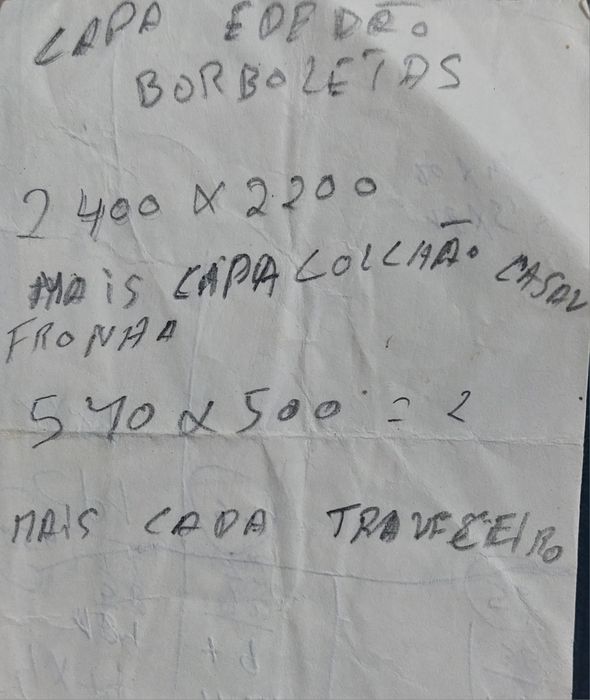 CAPA EDEDRÃO
BORBOLETAS
2400 X 2200
MAIS CAPA COLCHÃO CASAL
FRONHA
570 X 500 = 2
MAIS CAPA TRAVESEIRO